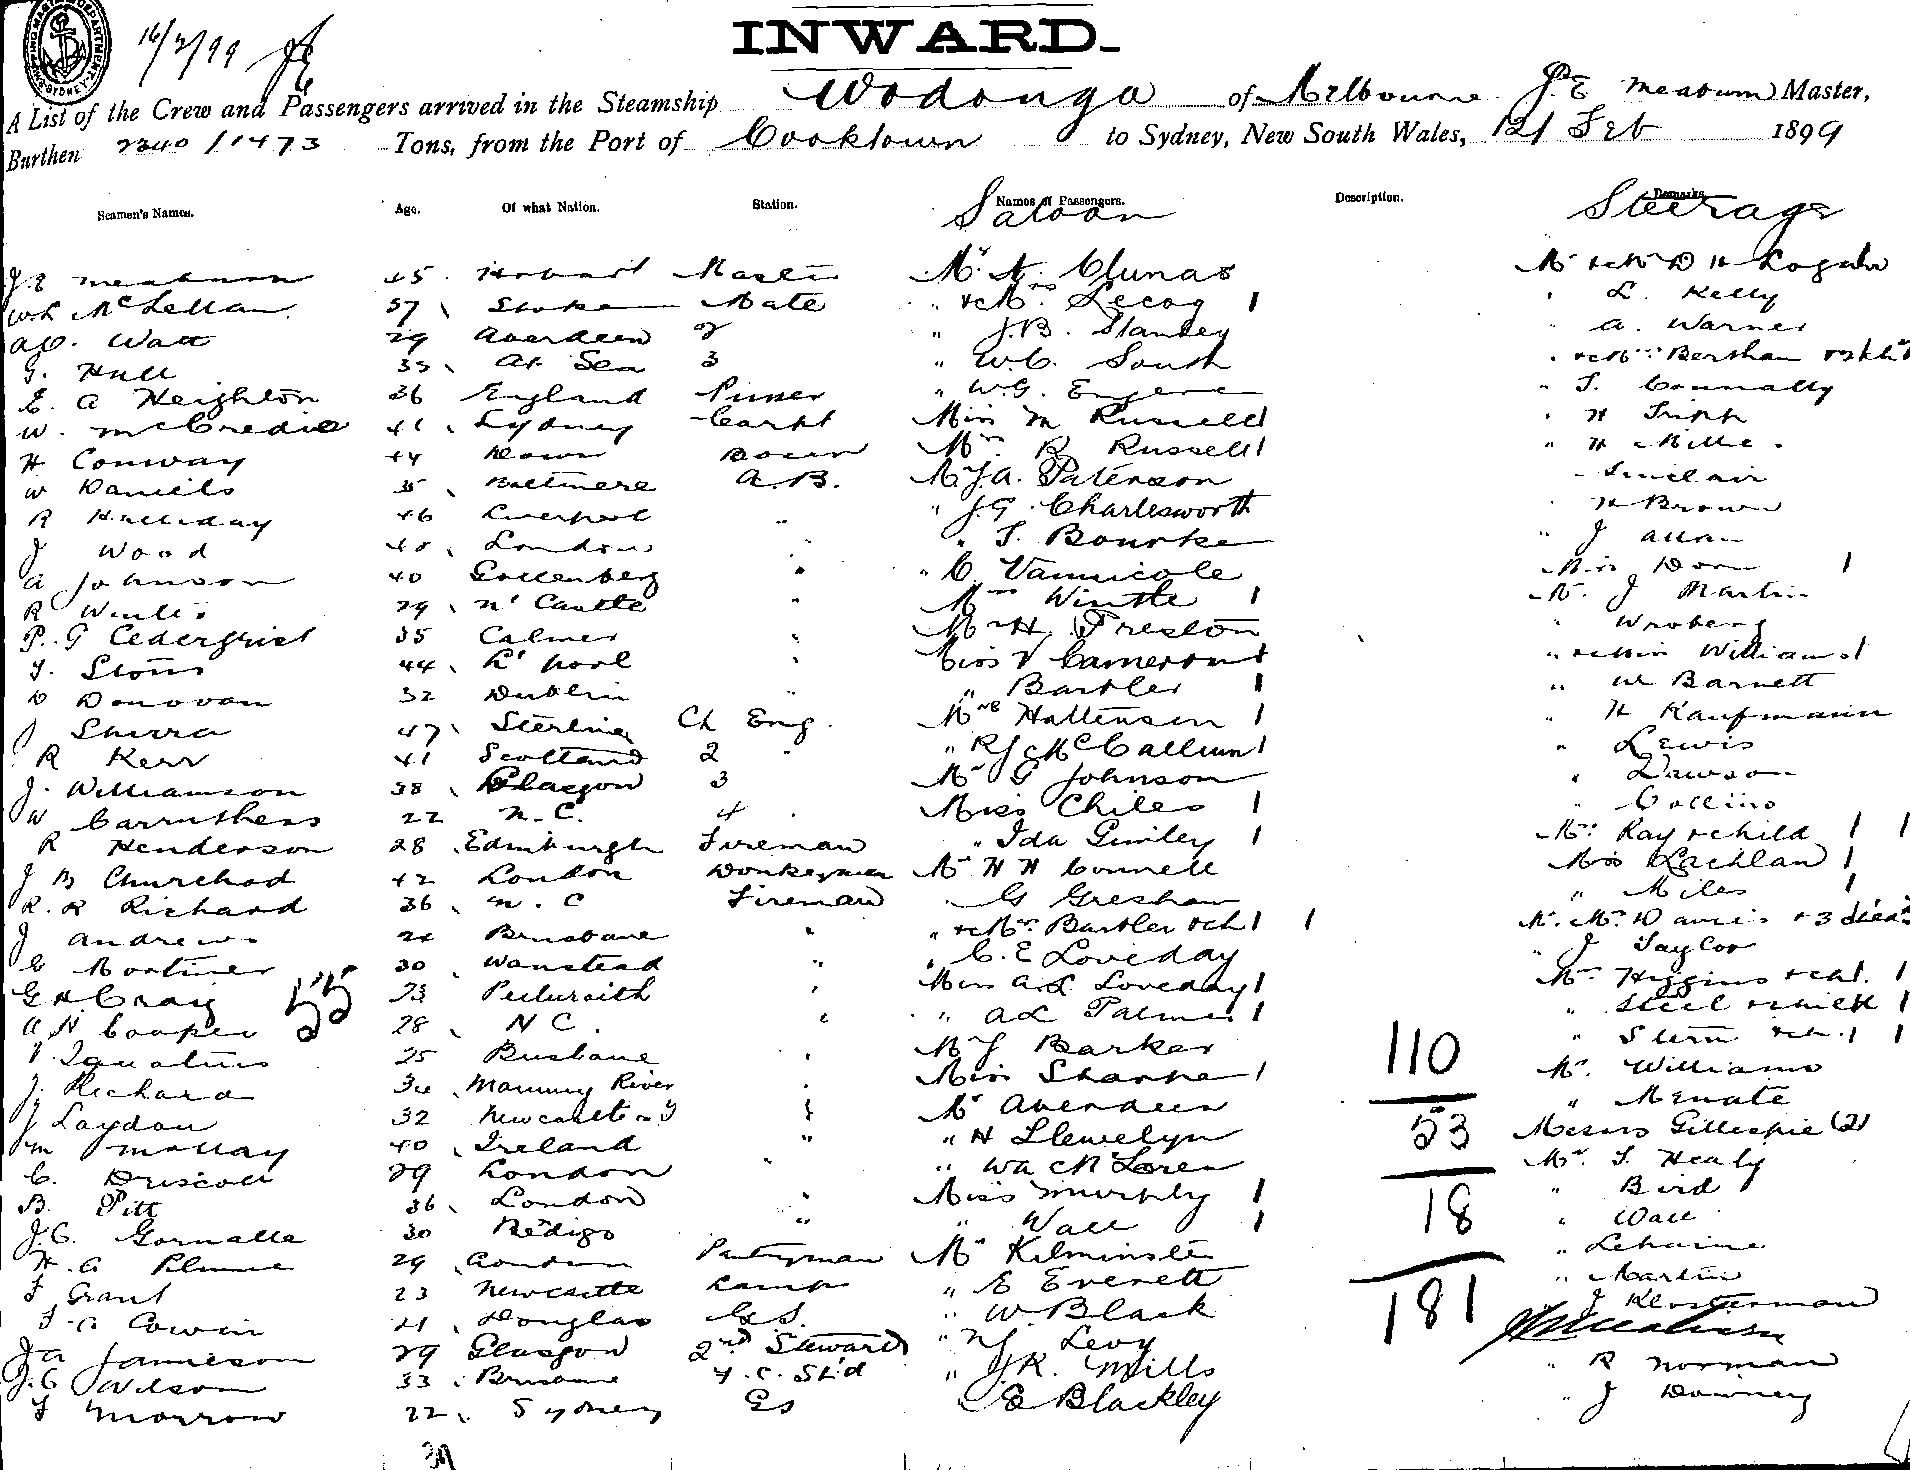 16/2/99
INWARD
A List of the Crew and Passengers arrived in the Steamship Wodonga of Melbourne J. E Meaburn Master,
Burthen 2340 / 1473 Tons, from the Port of Cooktown to Sydney, New South Wales, Feb 1899
Seamen's Names. Age. Of what Nation. Station. Names of Passengers. Description. Remarks.
Saloon Steerage
J E Meaburn 45 Hobart Master Mr. A. Clunas Mr & Mrs D H Logan
W. L McLellan 37 Stoke Mate " & Mrs. Lecoq 1 " L. Kelly
A. Watt 29 Aberdeen 2 " J. B. Stanley " A. Warner
G. Hull 33 At Sea 3 " W. C. South " & Mrs
E. A Heighton 36 England Purser " W. G. Eugene " T. Connally
W. McCredie 41 Sydney Carpt Miss M Russell 1 " H
H Conway 44 Down Mrs R Russell 1 " H
W Daniels 35 Baltimore A. B. Mr J. A. Paterson " Sinclair
R Halliday 46 Liverpool " " J. G. Charlesworth " H Brown
J Wood 40 London " " T. Bourke " J Allan
A Johnson 40 Gottenberg " " C. Vannicole Miss 1
R 29 N' Castle " Mrs Wintle 1 Mr. J Martin
P. G Cederquist 35 Calmer " Mr H. Preston " Wroberg
T. 44 L' pool " Miss V Cameron 1 " & Miss Williams 1
D Donovan 32 Dublin " " Bartler 1 " W Barnett
J Shirra 47 Sterling Ch Eng. Mrs Haltensen 1 " H Kaufmann
R Kerr 41 Scotland 2 " " R J McCallum 1 " Lewis
J. Williamson 38 Glasgow 3 Mr G Johnson " Dawson
W Carruthers 22 N. C. 4 " Miss Chiles 1 " Collins
R Henderson 28 Edinburgh Fireman " Ida Gimley 1 Mrs Ray & child 1 1
J B Churchod 42 London Donkeyman Mr H H Connell Miss Lachlan 1
R. R Richard 36 N. C Fireman G Gresham " Miles 1
J Andrews Brisbane " " & Mrs Bartler & ch 1 1 Mr. Mrs & 3
C Mortimer 30 Wanstead " " C. E Loveday " J Taylor
G H Craig 23 " Miss A. L Loveday 1 Mrs Higgins & chd. 1
55
A H Cooper 28 N C. " " A L Palmer 1 " Steel & child 1
25 Brisbane " Mr J Barker " Stern & ch. 1 1
110
J. Richard Manning River " Miss Sharpe 1 Mr. Williams
J Laydon 32 Newcastle " Mr Aberdeen "
53
40 Ireland " " H Llewelyn Messrs Gillespie (2)
C. Driscoll 29 London " " Wm McLaren Mr. T. Healy
B. Pitt 36 London " Miss Murphy 1 " Bird
18
J. C. Gormalla 30 " " Wall 1 " Wall
H. A 29 London Pantryman Mr Kilminster " Lehaine
F Grant 23 Newcastle Lamp " E Everett " Martin
181
F. A Cowin 21 Douglas G. S. " W. Black " J Klosterman
J A Jamieson 29 Glasgow 2nd Steward " N J Levy
J. C Wilson 33 Brisbane F. C. St'd " J. R. Mills " R Norman
F Morrow 22 Sydney G s E Blackley " J Downey
39